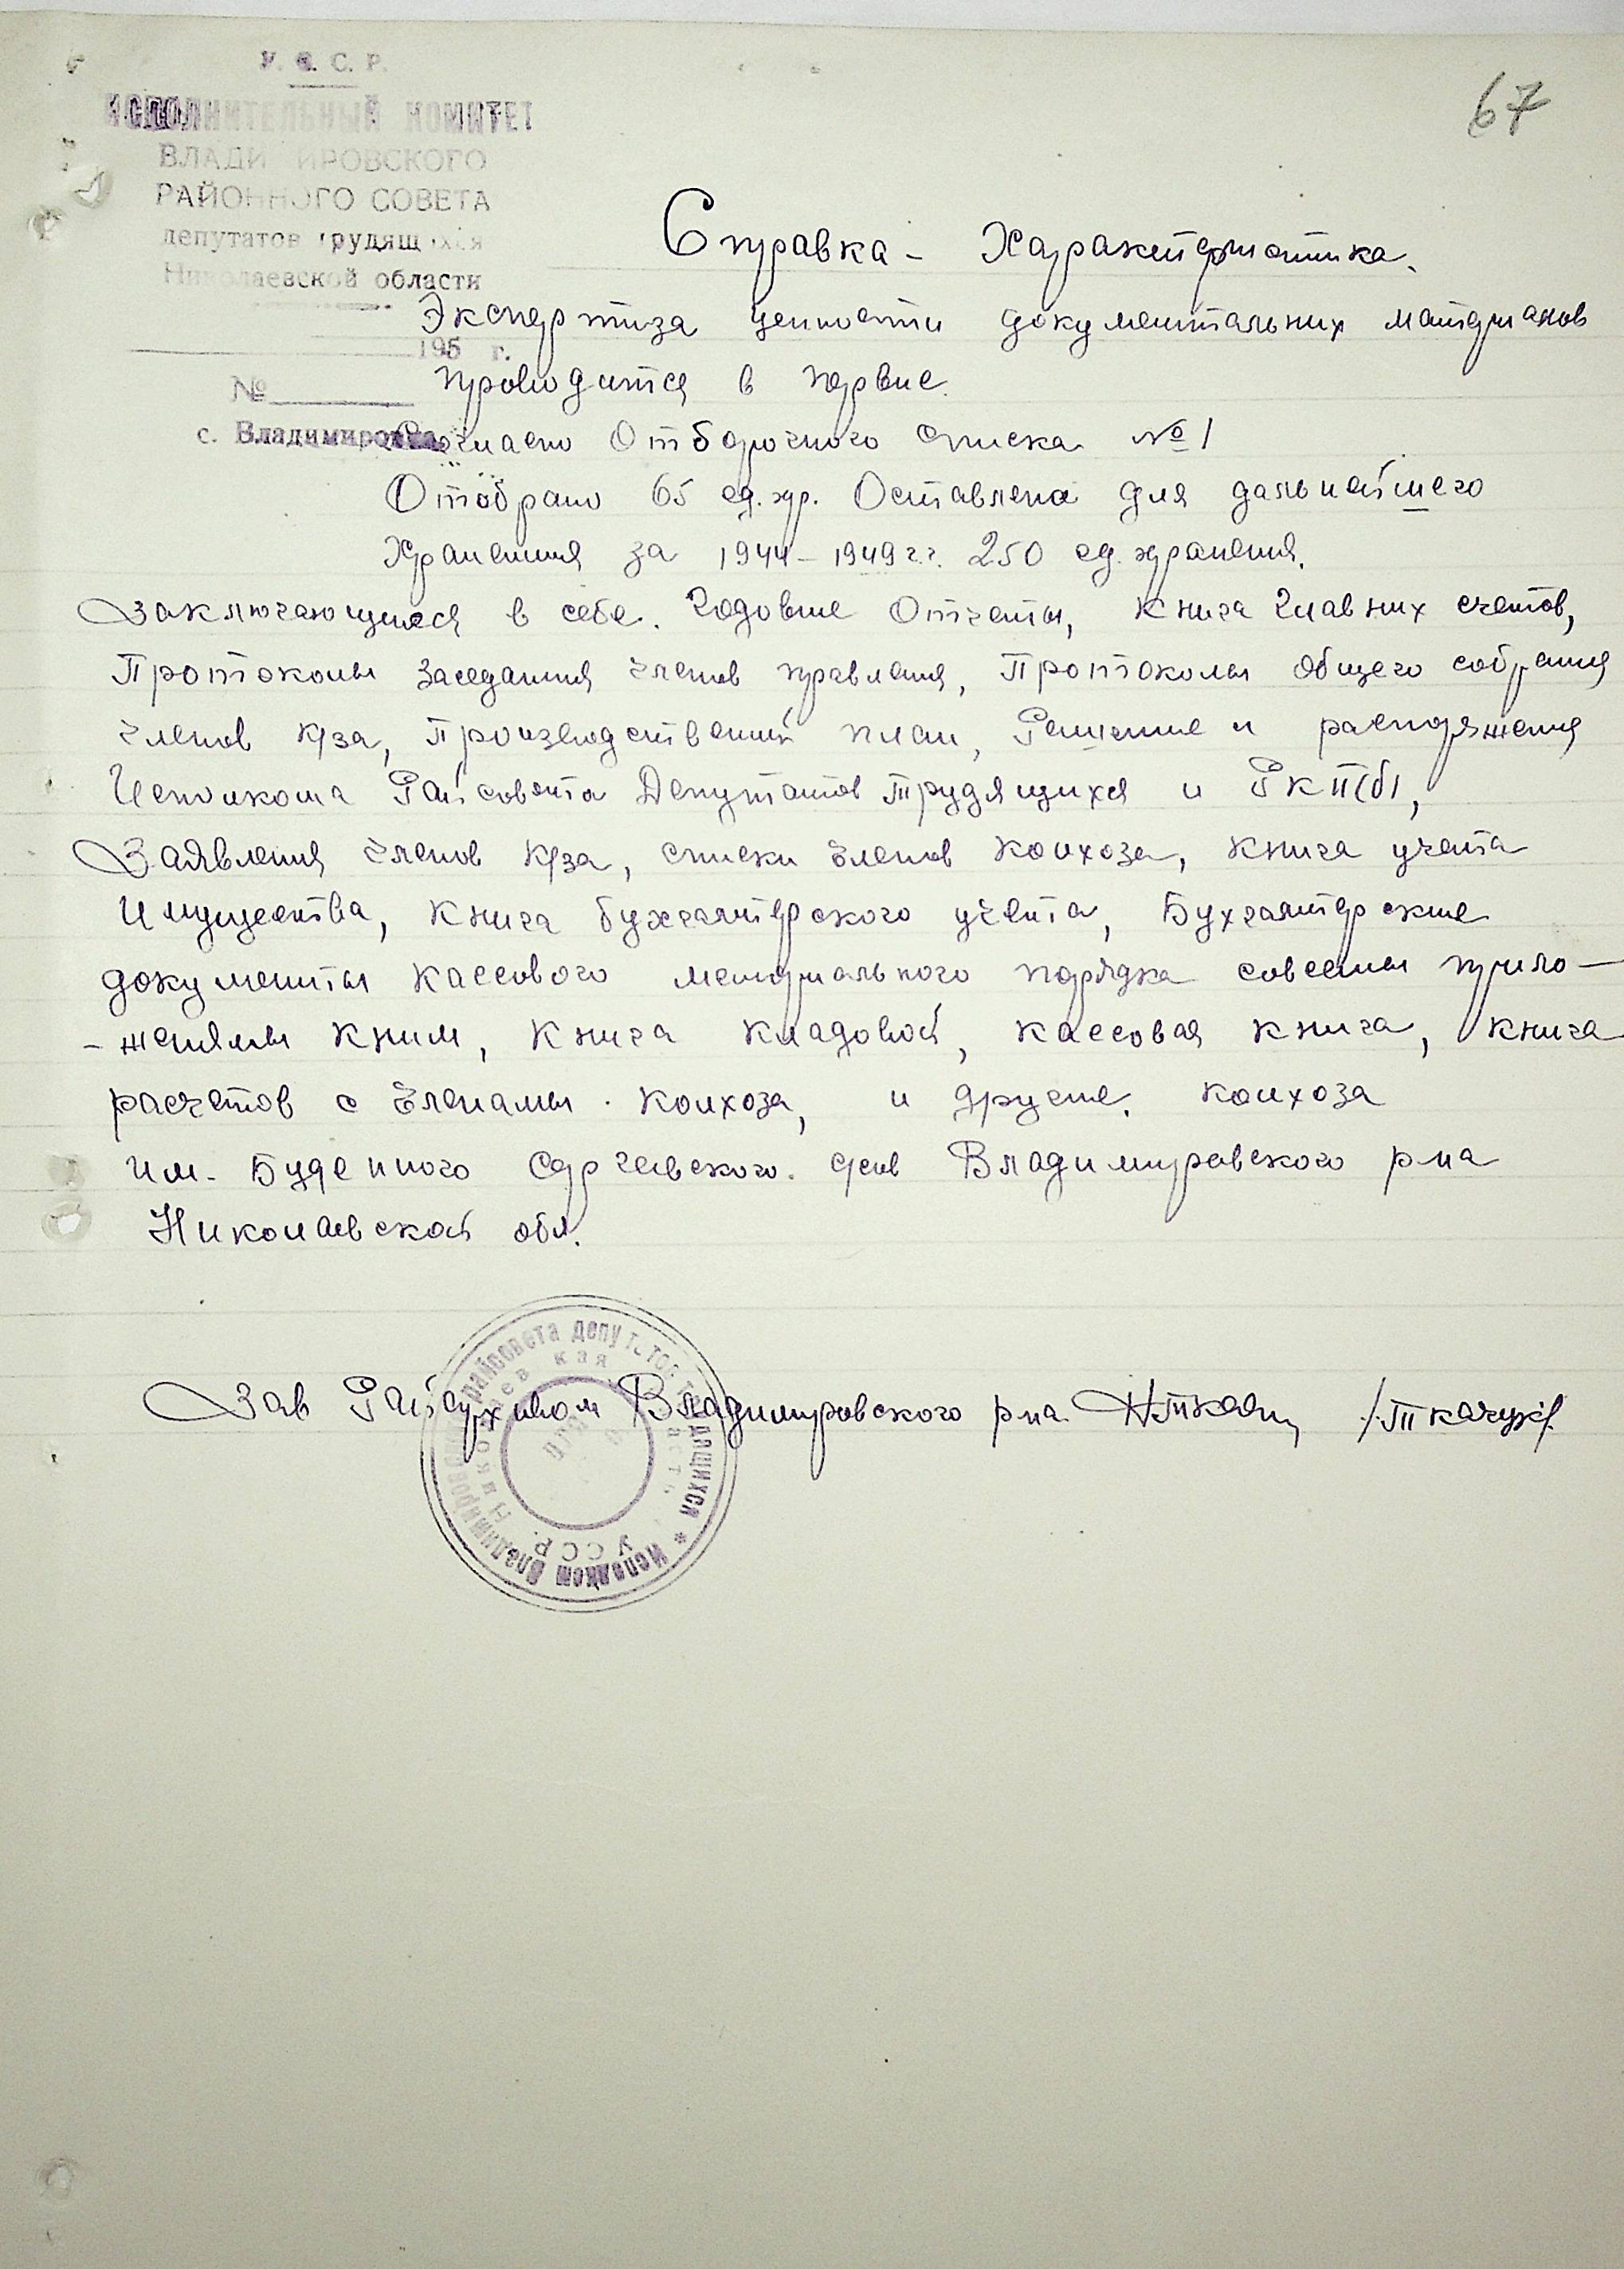 У. С. С. Р.
ИСПОЛНИТЕЛЬНЫЙ КОМИТЕТ
ВЛАДИМИРОВСКОГО
РАЙОННОГО СОВЕТА
депутатов трудящихся
Николаевской области
195 г.
№
с. Владимировка
67
Справка - Характеристика.
Экспертиза ценности документальних материалов
проводится в первие.
Согласно Отборочного списка №1
Отобрано 65 ед. хр. Оставлена для дальнейшего
Хранения за 1944-1949 г.г. 250 ед. хранения.
Заключающиеся в себе. Годовие Отчеты, Книга Главних счетов,
Протоколы Заседания членов правления, Протоколы общего собрания
членов к/за, Производственний план, Решение и распоряжения
Исполкома Райсовета Депутатов Трудящихся и РКП(б),
Заявления членов к/за, списки членов колхоза, книга учета
Имущества, Книга бухгалтерского учёта, Бухгалтерские
документы Кассового мемориального порядка совсемы прило-
-жениямы К ним, Книга Кладовой, Кассовая книга, книга
расчетов с членамы колхоза, и другие. колхоза
им. Буденного Сергеевского Владимировского р-на
Николаевской обл.
Зав Райархивом Владимировского р-на /Ткачук/
Исполком Владимировского райсовета депутатов трудящихся *
Николаевская область УССР.